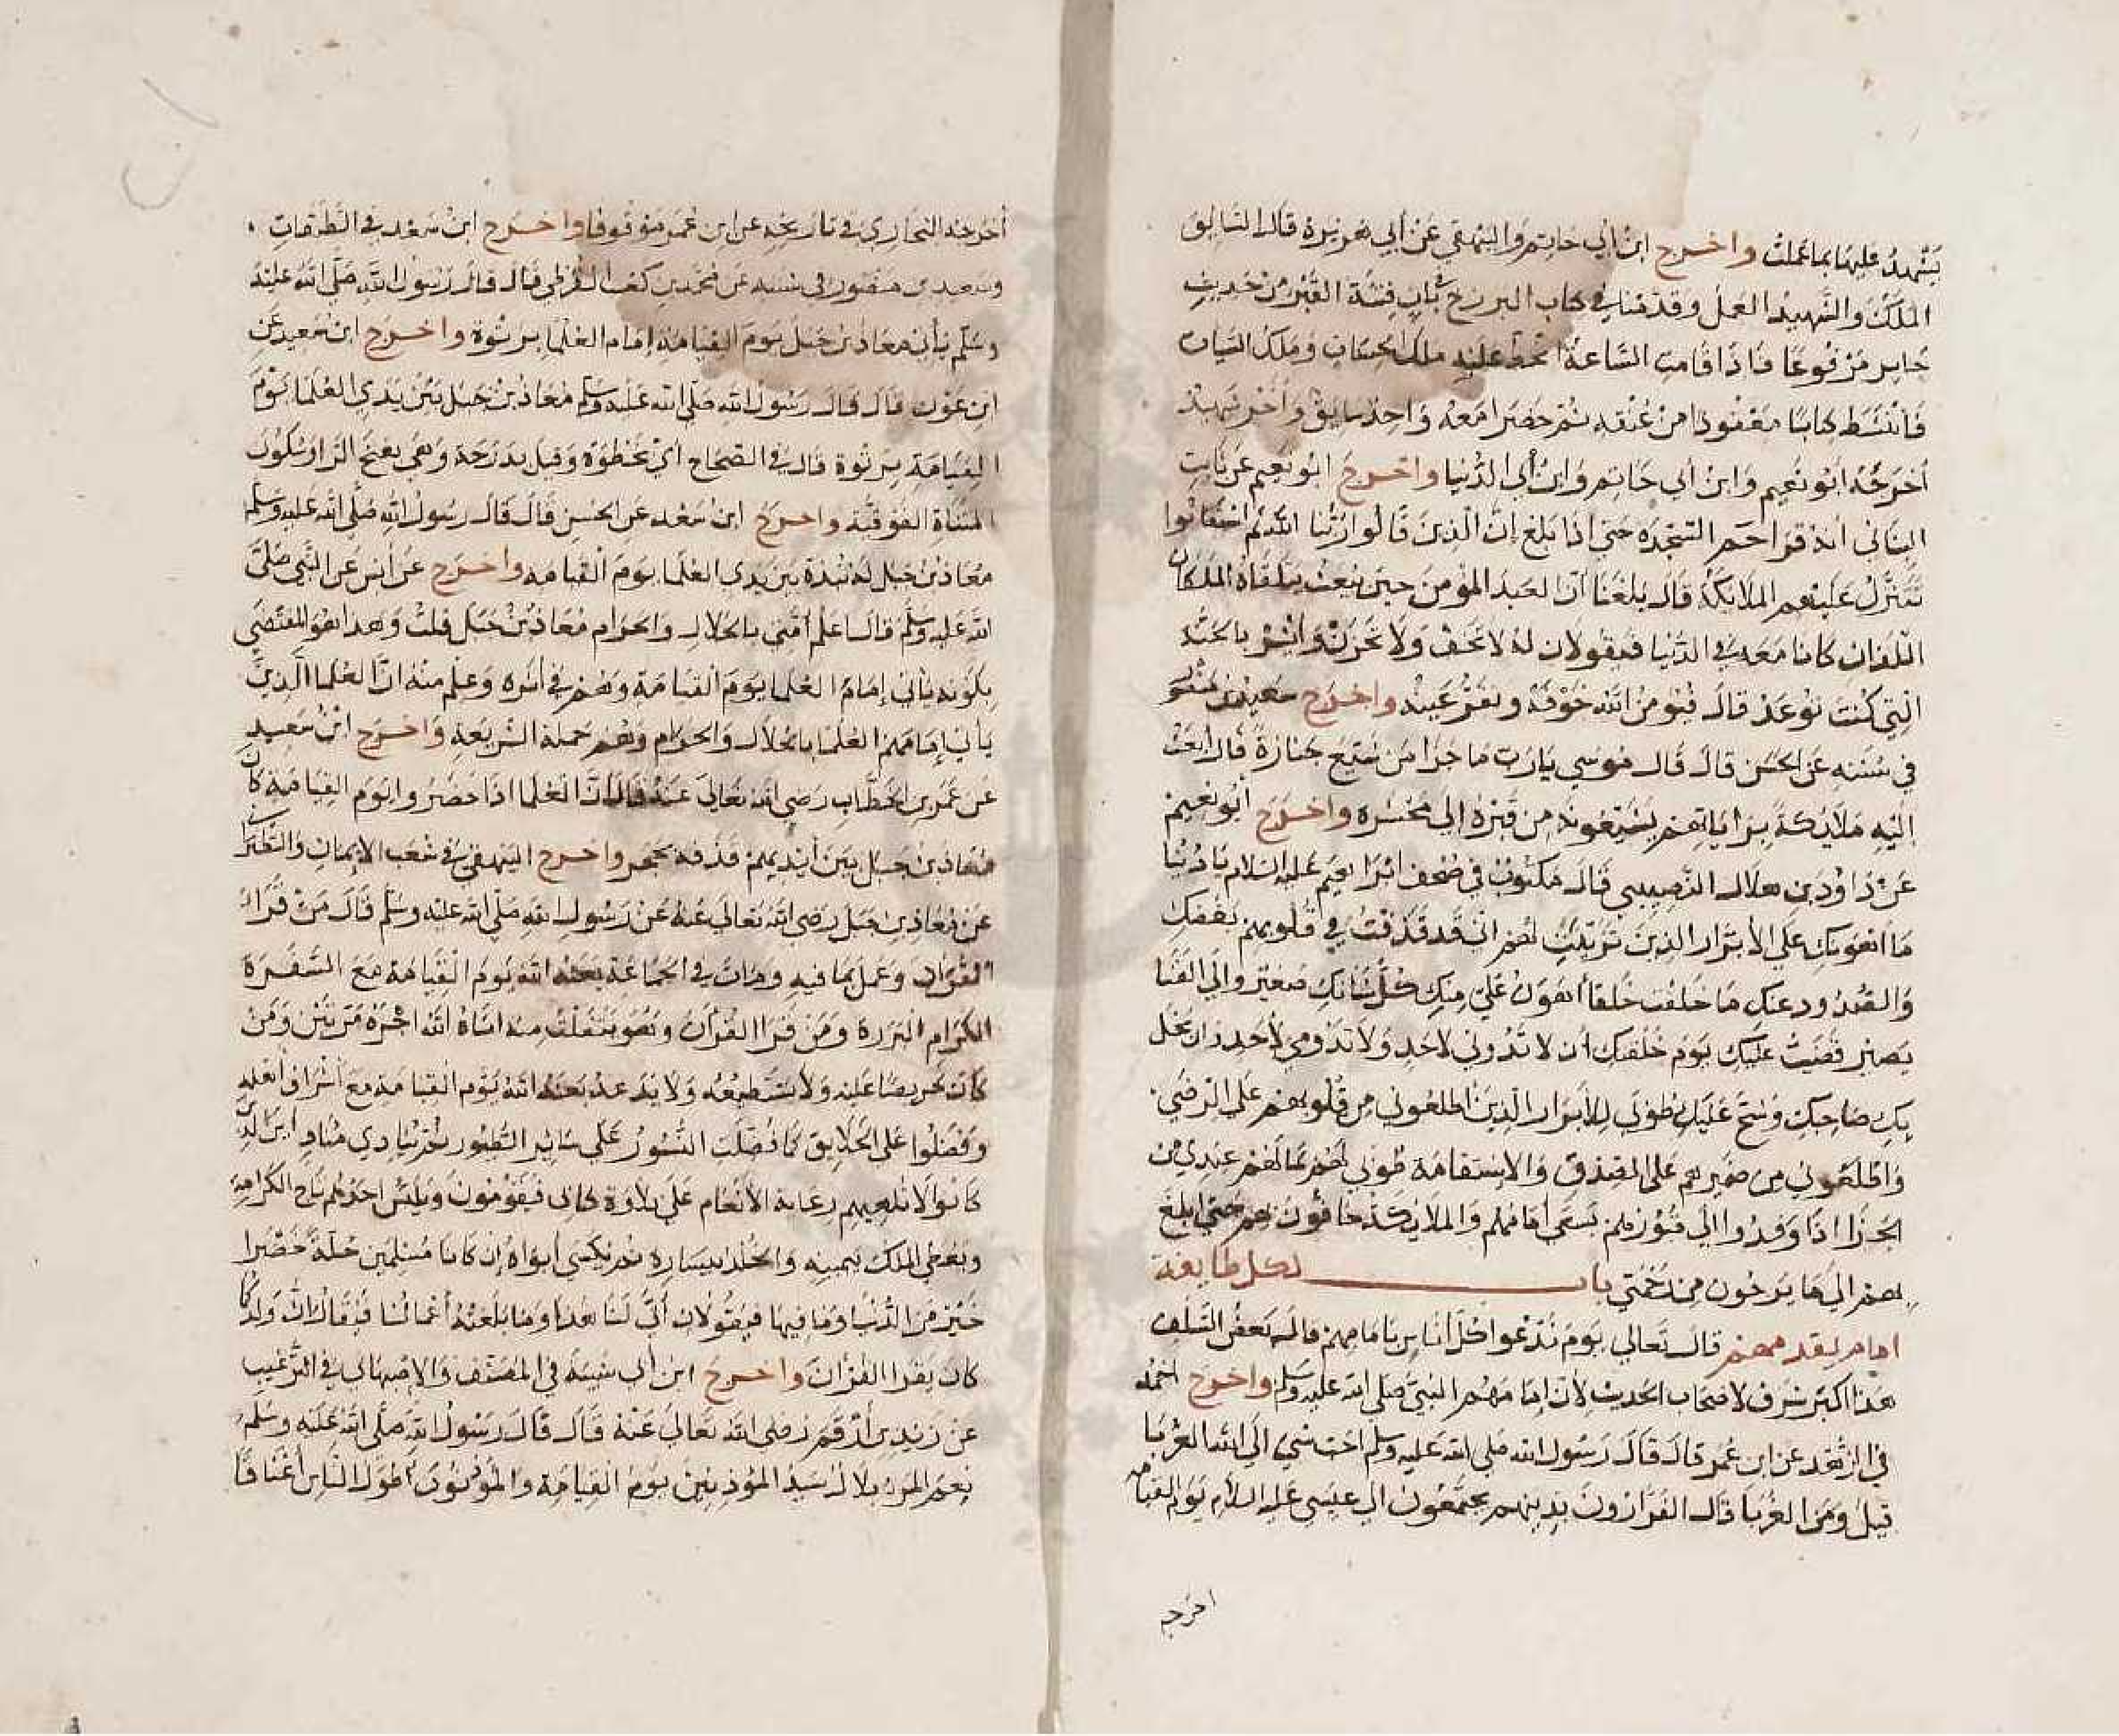 يَشْهدُ عليها بما عملت واخرج ابن أبي حاتم والبيهقي عن أبي هريرة قال السايق
الملك والشهيد العمل وقدمنا في كتاب البرزخ في باب فتنة القبر من حديث
جابر مرفوعا فاذا قامت الساعة انحط عليه ملك الحسنات وملك السيات
فانتشطا كتابا معقودا من عنقه ثم حضرا معه واحد سايق وآخر شهيد
أخرجه ابو نعيم وابن أبي حاتم وابن أبي الدنيا واخرج ابو نعيم عن ثابت
البناني انه قرا حم السجدة حتى اذا بلغ ان الذين قالوا ربنا الله ثم استقاموا
تتنزل عليهم الملايكة قال بلغنا أن العبد المؤمن حين يبعث يتلقاه الملكان
اللذان كانا معه في الدنيا فيقولان له لا تخف ولا تحزن وابشر بالجنة
التي كنت توعد قال فيؤمن الله خوفه ويقر عينه واخرج سعيد بن منصور
في سننه عن الحسن قال قال موسي يارب ما جزا من شيع جنازة قال ابعث
اليه ملايكة براياتهم يشيعونه من قبره الى محشره واخرج أبو نعيم
عن داود بن هلال النصيبي قال مكتوب في صحف ابراهيم عليه السلام يا دنيا
ما اهونك على الأبرار الذين تزينت لهم اني قد قذفت في قلوبهم بغضك
والصدود عنك ما خلقت خلقا أهون علي منك كل شانك صغير والى الفنا
يصير قضيت عليك يوم خلقتك أن لا تدومي لاحد ولا يدوم لك أحد وان بخل
بك صاحبك وشح عليك طوبى للأبرار الذين اطلعوني من قلوبهم على الرضي
واطلعوني من ضميرهم على الصدق والاستقامة طوبى لهم ما لهم عندي من
الجزا اذا وفدوا الي من قبورهم نورهم يسعى أمامهم والملايكة حافون بهم حتى ابلغ
بهم الي ما يرجون من رحمتي باب لكل طايفة
امام يقدمهم قال تعالي يوم ندعوا كل أناس بامامهم قال بعض السلف
هذا اكبر شرف لاصحاب الحديث لأن إمامهم النبي صلى الله عليه وسلم واخرج احمد
في الزهد عن ابن عمر قال قال رسول الله صلى الله عليه وسلم احب شي الي الله الغربا
قيل ومن الغربا قال الفرارون بدينهم يجتمعون الي عيسي عليه السلام يوم القيامة
اخرجه
أخرجه البخاري في تاريخه عن ابن عمر موقوفا واخرج ابن سعد في الطبقات
وسعيد بن منصور في سننه عن محمد بن كعب القرظي قال قال رسول الله صلى الله عليه
وسلم يأتي معاذ بن جبل يوم القيامة إمام العلما برتوة واخرج ابن سعيد عن
ابن عون قال قال رسول الله صلى الله عليه وسلم معاذ بن جبل بين يدي العلما يوم
القيامة برتوة قال في الصحاح أي بخطوة وقيل بدرجة وهي بفتح الرا وسكون
المثناة الفوقية واخرج ابن سعد عن الحسن قال قال رسول الله صلى الله عليه وسلم
معاذ بن جبل له نبذة بين يدي العلما يوم القيامة واخرج عن أنس عن النبي صلى
الله عليه وسلم قال اعلم أمتي بالحلال والحرام معاذ بن جبل قلت وهذا هو المقتضي
لكونه يأتي إمام العلما يوم القيامة وهم في أثره وعلم منه ان العلما الذين
يأتي إمامهم العلما بالحلال والحرام وهم حملة الشريعة واخرج ابن سعيد
عن عمر بن الخطاب رضي الله تعالى عنه قال ان العلما اذا حضروا يوم القيامة كان
معاذ بن جبل بين أيديهم قذفة بحجر واخرج البيهقي في شعب الإيمان والطبراني
عن معاذ بن جبل رضي الله تعالى عنه عن رسول الله صلى الله عليه وسلم قال من قرا
القرآن وعمل بما فيه ومات في الجماعة بعثه الله يوم القيامة مع السفرة
الكرام البررة ومن قرا القرآن وهو يتفلت منه اتاه الله اجره مرتين ومن
كان حريصا عليه ولا يستطيعه ولا يدعه بعثه الله يوم القيامة مع أشراف أهله
وفضلوا على الخلايق كما فضلت النسور على ساير الطيور ثم ينادي مناد أين الذين
كانوا لا تلهيهم رعاية الأنعام على تلاوة كتابي فيقومون ويلبس احدهم تاج الكرامة
ويعطى الملك بيمينه والخلد بيساره ثم يكسى أبواه إن كانا مسلمين حلة خضرا
خير من الدنيا وما فيها فيقولان أنى لنا هذا وما بلغته أعمالنا فيقال ان ولدكما
كان يقرا القرآن واخرج ابن أبي شيبة في المصنف والاصبهاني في الترغيب
عن زيد بن أرقم رضي الله تعالى عنه قال قال رسول الله صلى الله عليه وسلم
نعم المرء بلال سيد المؤذنين يوم القيامة والمؤذنون أطول الناس أعناقا